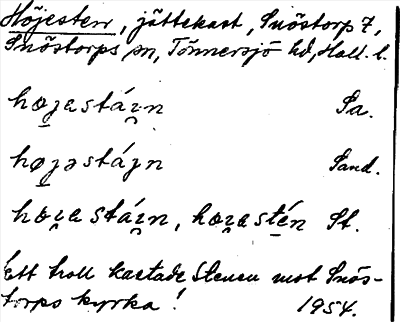 Höjesten, jättekast, Snöstorp 7,
Snöstorps sn, Tönnersjö hd, Hall. l.
højastáın Sa.
højəstáȷn Sand.
høı̯astáı̯n, høı̯astén St.
Ett troll kastade stenen mot Snös-
torps kyrka! 1954.